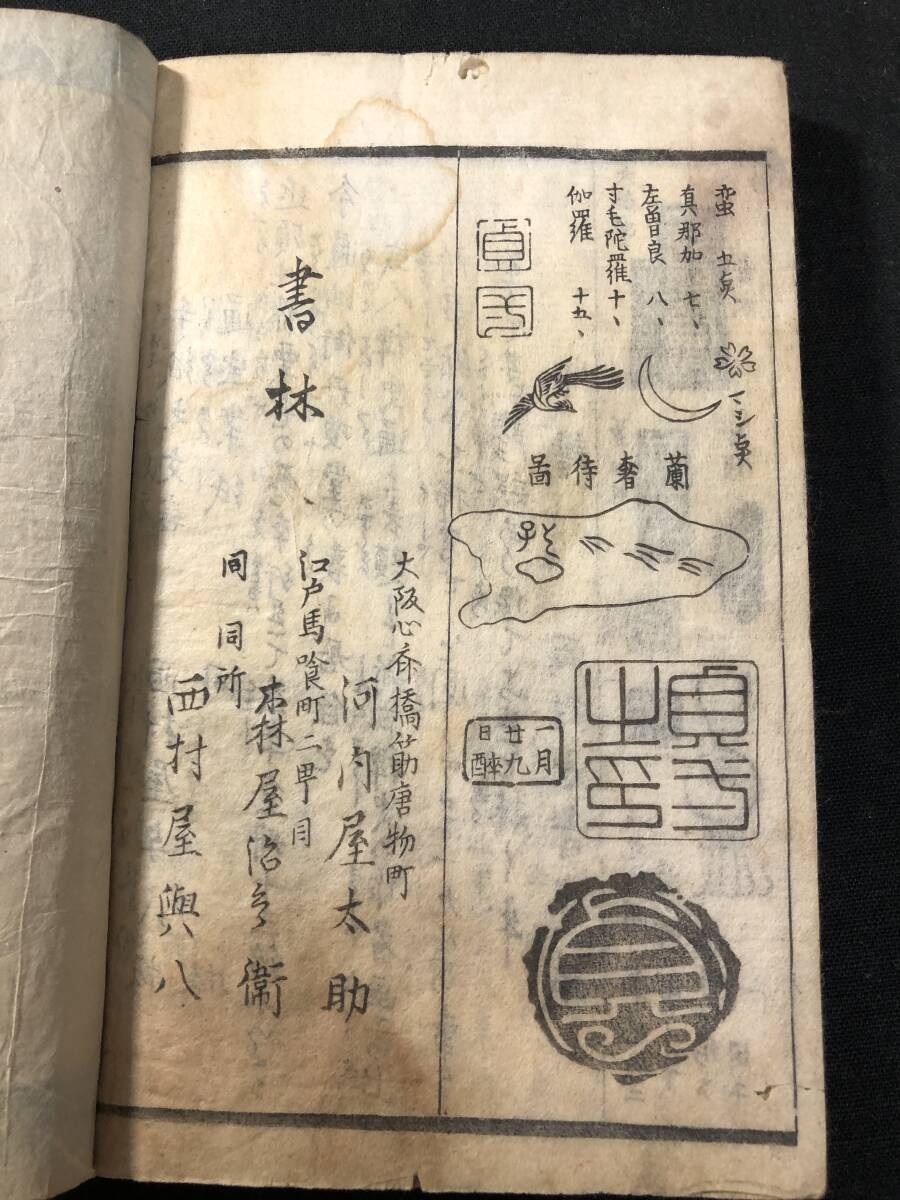 蛮 五貞
真那加 七、
左曽良 八、
寸毛陀羅 十、
伽羅 十五、
一ミ貞
蘭奢待啚
一月
廿九
日酔
書林
大阪心斎橋筋唐物町
河内屋太助
江戸馬喰町二甼目
森屋治兵衛
同同所
西村屋與八